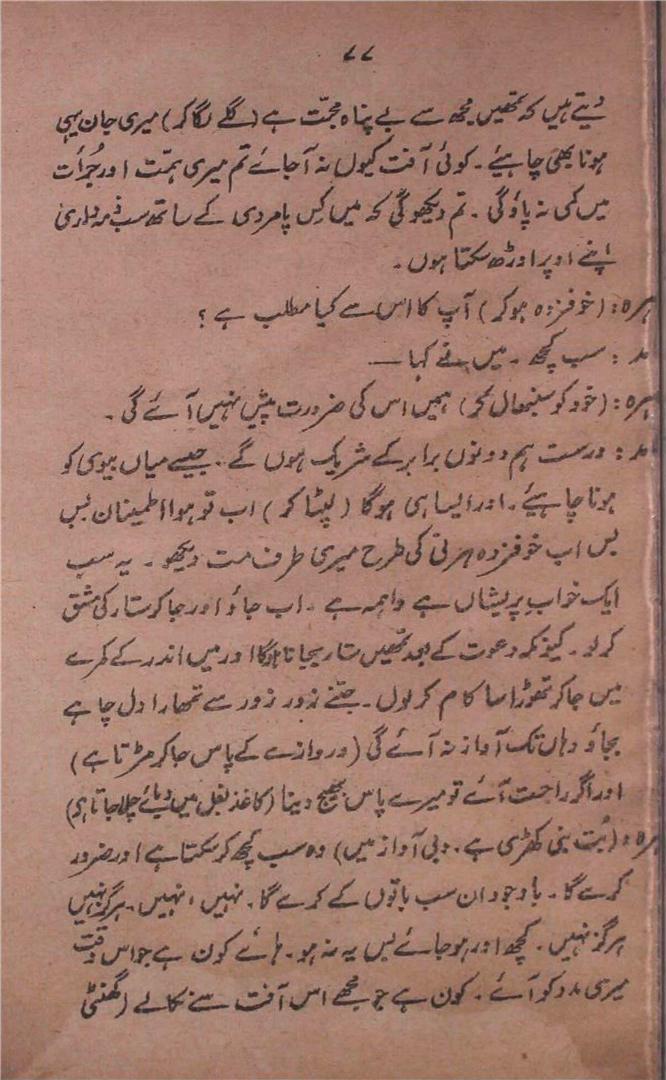 ۷۷
دیتے ہیں کہ تمھیں مجھ سے بے پناہ محبّت ہے (گلے لگا کر) میری جان یہی
ہونا بھی چاہیئے۔ کوئی آفت کیوں نہ آجائے تم میری ہمّت اور جرُأت
میں کمی نہ پاؤ گی۔ تم دیکھو گی کہ میں کِس پامردی کے ساتھ سب ذمہ داری
اپنے اوپر اوڑھ سکتا ہوں۔
ہرہ: (خوفزدہ ہو کر) آپ کا اس سے کیا مطلب ہے؟
مد: سب کچھ۔ میں نے کہا —
ہرہ: (خود کو سنبھال کر) ہمیں اس کی ضرورت پیش نہیں آئے گی۔
مد: درست ہم دونوں برابر کے شریک ہوں گے۔ جیسے میاں بیوی کو
ہونا چاہیئے۔ اور ایسا ہی ہو گا (لپٹا کر) اب تو ہوا اطمینان بس
بس اب خوفزدہ ہرنی کی طرح میری طرف مت دیکھو۔ یہ سب
ایک خوابِ پریشاں ہے واہمہ ہے۔ اب جاؤ اور جا کر ستار کی مشق
کر لو۔ کیونکہ دعوت کے بعد تمھیں ستار بجانا ہو گا اور میں اندر کے کمرے
میں جا کر تھوڑا سا کام کر لوں۔ جتنے زور زور سے تمھارا دل چاہے
بجاؤ وہاں تک آواز نہ آئے گی (دروازے کے پاس جا کر مڑتا ہے)
اور اگر راحت آئے تو میرے پاس بھیج دینا (کاغذ بغل میں دبائے چلا جاتا ہی)
ہرہ: (بُت بنی کھڑی ہے۔ دبی آواز میں) وہ سب کچھ کر سکتا ہے اور ضرور
کرے گا۔ باوجود ان سب باتوں کے کرے گا۔ نہیں، نہیں۔ ہرگز نہیں
ہرگز نہیں۔ کچھ اور ہو جائے بس یہ نہ ہو۔ ہائے کون ہے جو اس وقت
میری مدد کو آئے۔ کون ہے جو مجھے اس آفت سے نکالے (گھنٹی